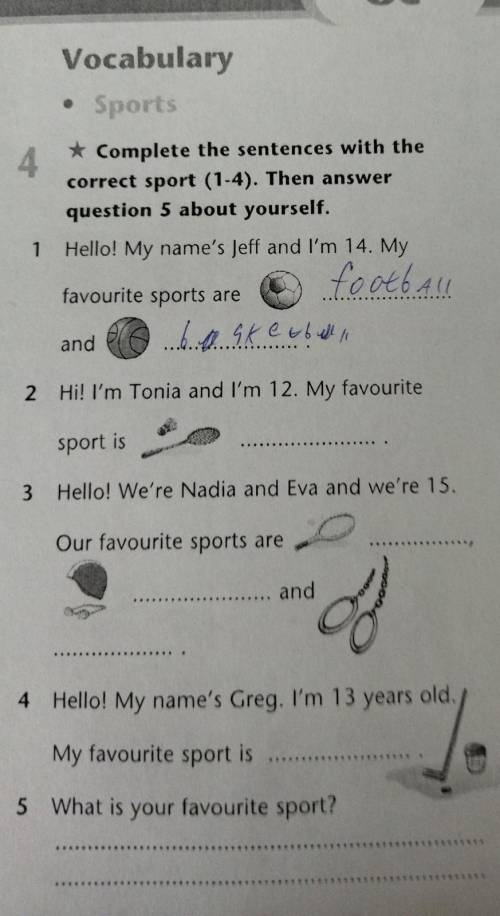 Vocabulary
• Sports
4 ★ Complete the sentences with the
correct sport (1-4). Then answer
question 5 about yourself.
1 Hello! My name's Jeff and I'm 14. My
favourite sports are football
and
2 Hi! I'm Tonia and I'm 12. My favourite
sport is ........................ .
3 Hello! We're Nadia and Eva and we're 15.
Our favourite sports are ..................,
........................ and
..................... .
4 Hello! My name's Greg. I'm 13 years old.
My favourite sport is ........................ .
5 What is your favourite sport?